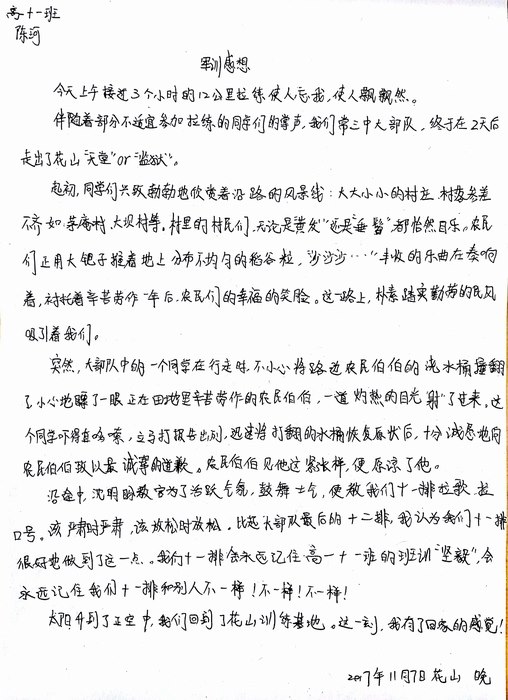 高十一班
陈河
军训感想
今天上午接近3个小时的12公里拉练使人忘我,使人飘飘然。
伴随着部分不适宜参加拉练的同学们的掌声,我们常三中大部队,终于在2天后
走出了花山"天堂"or"监狱"。
起初,同学们兴致勃勃地欣赏着沿路的风景线:大大小小的村庄,村寨参差
不齐如茅庵村,大坝村等。村里的村民们,无论是黄发"还是"垂髫"都怡然自乐。农民
们正用大钯子推着地上分布不均匀的稻谷粒,"沙沙沙……"丰收的乐曲在奏响
着,衬托着辛苦劳作一年后,农民们的幸福的笑脸。这一路上,朴素踏实勤劳的民风
吸引着我们。
突然,大部队中的一个同学在行走时,不小心将路边农民伯伯的浇水桶撞翻
了,小心地瞟了一眼正在田地里辛苦劳作的农民伯伯,一道灼热的目光"射"了过来。这
个同学吓得直哆嗦,立马打报告出列,迅速将打翻的水桶恢复原状后,十分诚恳地向
农民伯伯致以最诚挚的道歉。农民伯伯见他这紧张样,便原谅了他。
沿途中,沈明昉教官为了活跃气氛,鼓舞士气,便教我们十一排拉歌,拉
口号。该严肃时严肃,该放松时放松。比起大部队最后的十二排,我认为我们十一排
很好地做到了这一点。我们十一排会永远记住高一十一班的班训"坚毅",会
永远记住我们十一排和别人不一样!不一样!不一样!
太阳升到了正空中,我们回到了花山训练基地。这一刻,我有了回家的感觉!
2017年11月7日花山 晚